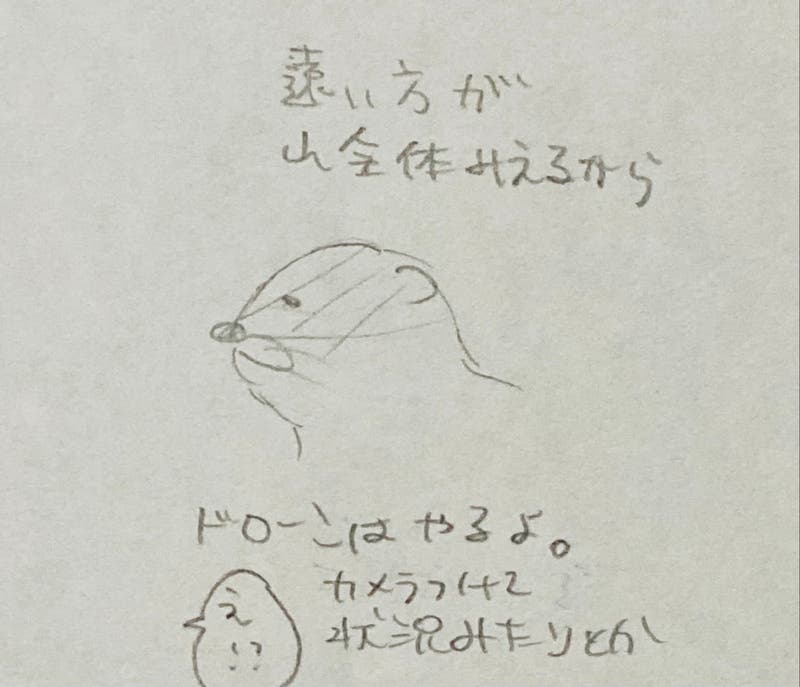 遠い方が
山全体みえるから
ドローンはやるよ。
カメラつけて
状況みたりとか
え
!?